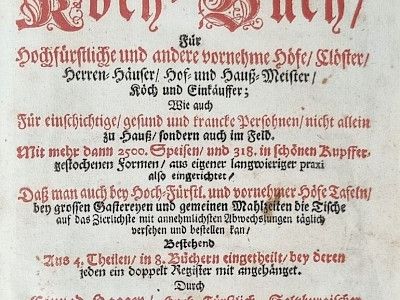 Koch-Buch/
Für
Hochfürstliche und andere vornehme Höfe/ Clöster/
Herren-Häuser/ Hof- und Hauß-Meister/
Köch und Einkäuffer;
Wie auch
Für einschichtige/ gesund und krancke Persohnen/ nicht allein
zu Hauß/ sondern auch im Feld.
Mit mehr dann 2500. Speisen/ und 318. in schönen Kupffer-
gestochenen Formen/ aus eigener langwieriger praxi
also eingerichtet/
Daß man auch bey Hoch-Fürstl. und vornehmer Höfe Tafeln/
bey grossen Gastereyen und gemeinen Mahlzeiten die Tische
auf das Zierlichste mit annehmlichsten Abwechslungen täglich
versehen und bestellen kan/
Bestehend
Aus 4. Theilen/ in 8. Büchern eingetheilt/ bey deren
jeden ein doppelt Register mit angehänget.
Durch